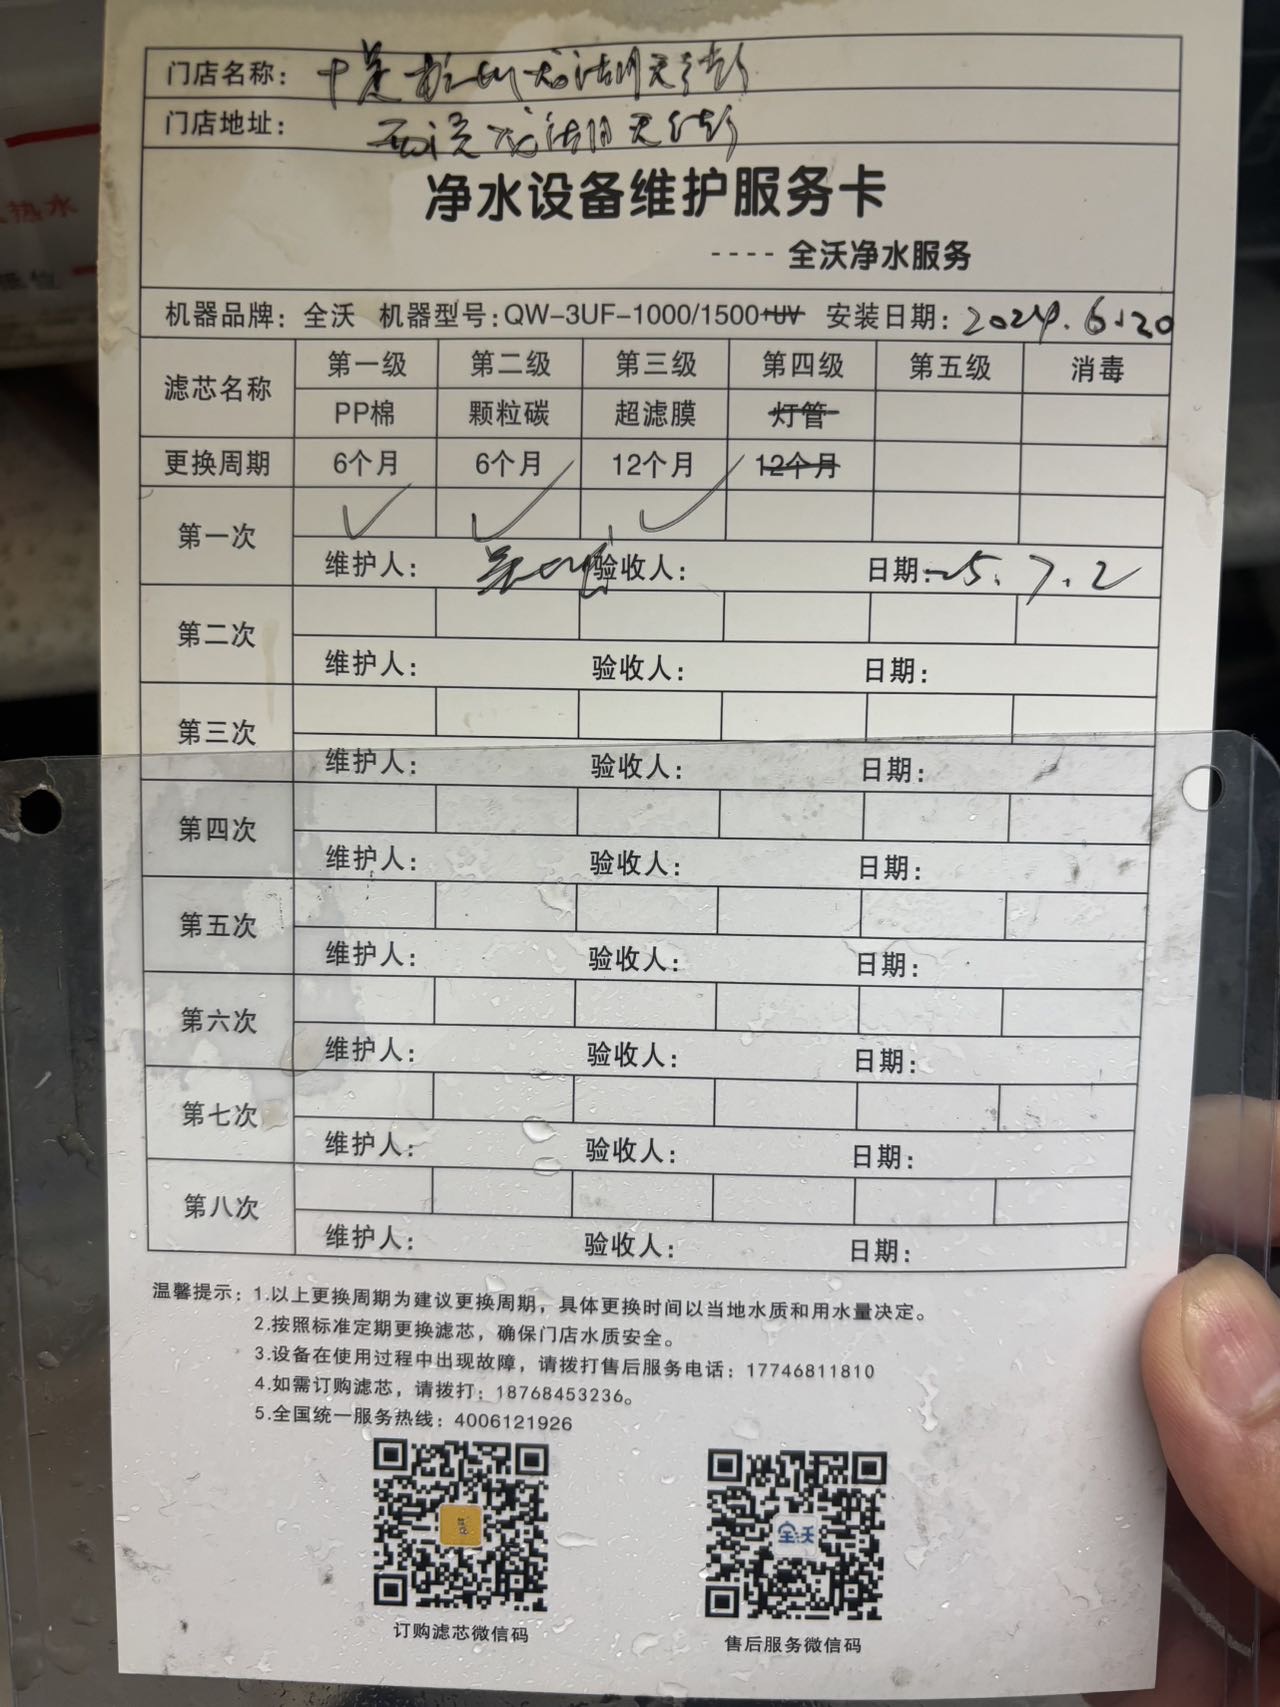 热水
门店名称：
门店地址： 西溪龙湖天街
净水设备维护服务卡
---- 全沃净水服务
机器品牌：全沃 机器型号：QW-3UF-1000/1500+UV 安装日期：2024.6.20
滤芯名称 第一级 第二级 第三级 第四级 第五级 消毒
PP棉 颗粒碳 超滤膜 灯管
更换周期 6个月 6个月 12个月 12个月
第一次 ✓ ✓ ✓
维护人： 验收人： 日期：25.7.2
第二次
维护人： 验收人： 日期：
第三次
维护人： 验收人： 日期：
第四次
维护人： 验收人： 日期：
第五次
维护人： 验收人： 日期：
第六次
维护人： 验收人： 日期：
第七次
维护人： 验收人： 日期：
第八次
维护人： 验收人： 日期：
温馨提示：1.以上更换周期为建议更换周期，具体更换时间以当地水质和用水量决定。
2.按照标准定期更换滤芯，确保门店水质安全。
3.设备在使用过程中出现故障，请拨打售后服务电话：17746811810
4.如需订购滤芯，请拨打：18768453236。
5.全国统一服务热线：4006121926
全沃
订购滤芯微信码
售后服务微信码